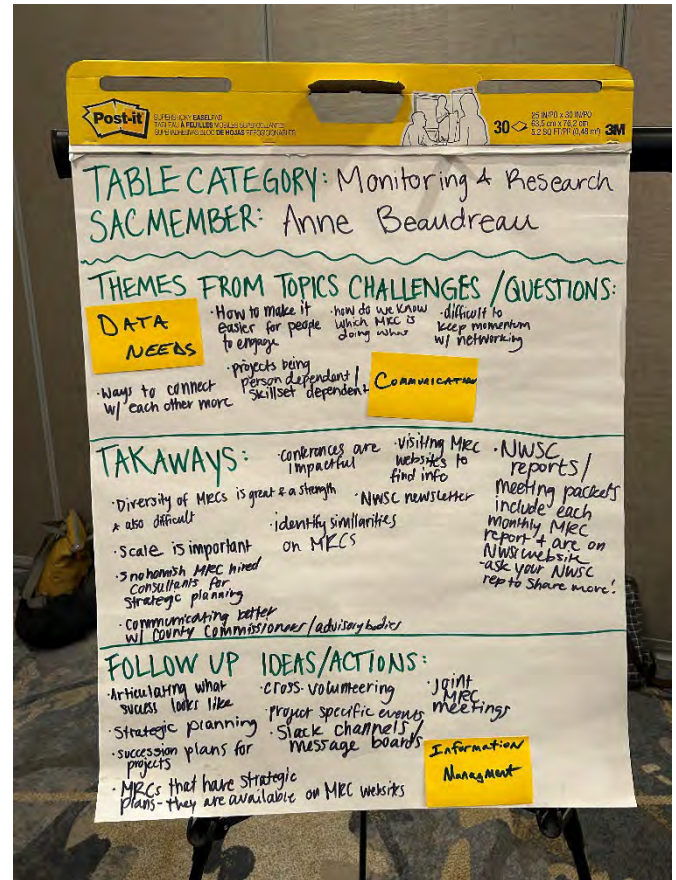 Post-it
SUPER STICKY EASEL PAD
30
25 IN/PO x 30 IN/PO
63,5 cm x 76,2 cm
5.2 SQ FT/PI² (0,48 m²)
3M
TABLE CATEGORY: Monitoring & Research
SAC MEMBER: Anne Beaudreau
THEMES FROM TOPICS CHALLENGES/QUESTIONS:
DATA
NEEDS
·How to make it
easier for people
to engage
·how do we know
which MRC is
doing what
·difficult to
keep momentum
w/ networking
·ways to connect
w/ each other more
·projects being
person dependent/
skillset dependent
COMMUNICATION
TAKAWAYS:
·conferences are
impactful
·visiting MRC
websites to
find info
·NWSC
reports/
meeting packets
include each
monthly MRC
report + are on
NWSC website
-ask your NWSC
rep to share more!
·Diversity of MRCs is great & a strength
& also difficult
·NWSC newsletter
·identify similarities
on MRCS
·Scale is important
·Snohomish MRC hired
consultants for
strategic planning
·communicating better
w/ County Commissioners/advisory bodies
FOLLOW UP IDEAS/ACTIONS:
·Articulating what
success looks like
·cross-volunteering
·joint
MRC
meetings
·Strategic planning
·project specific events
·succession plans for
projects
·Slack channels/
message boards
·MRCs that have strategic
plans-they are available on MRC websites
INFORMATION
MANAGMENT